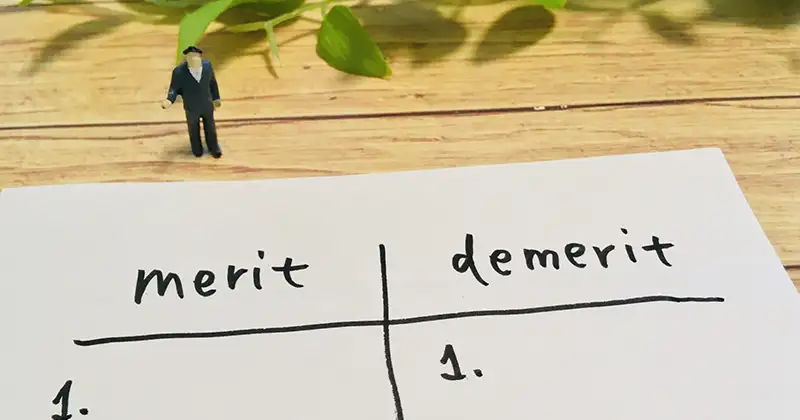 merit demerit
1. 1.